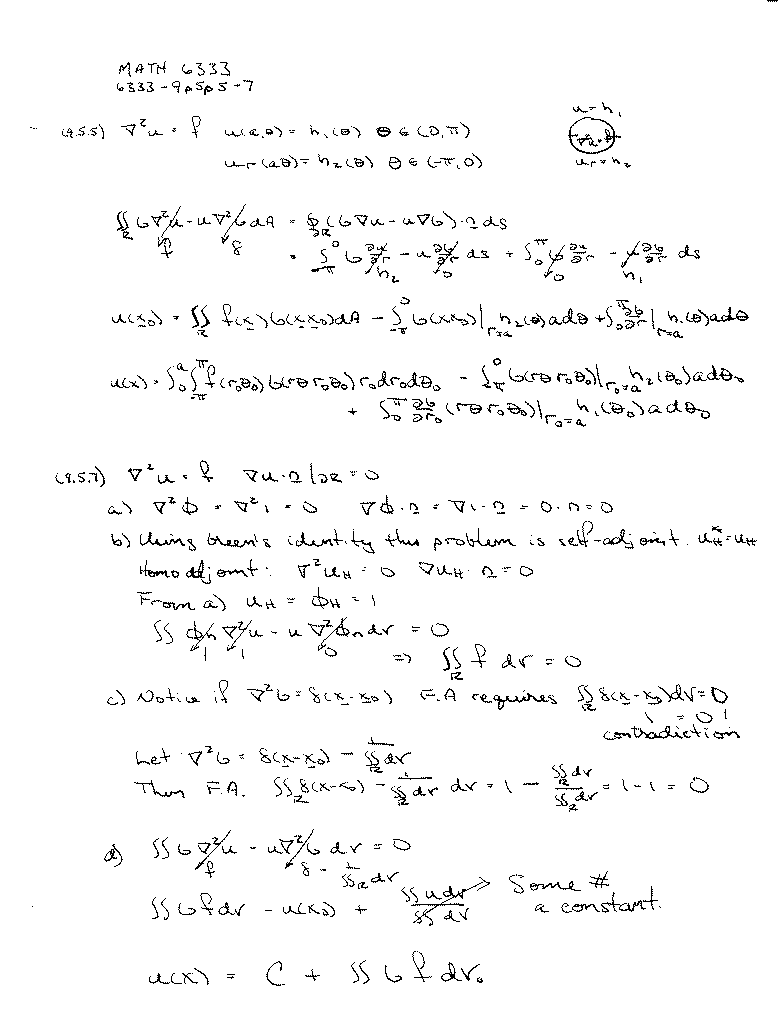 MATH 6333
6333-9p5p5-7
u=h₁
(9.5.5) ∇²u = f u(a,θ) = h₁(θ) θ ∈ (0,π)
∇²u=f
u_r(aθ) = h₂(θ) θ ∈ (-π,0)
u_r=h₂
∬_R G∇²u - u∇²G dA = ∮_∂R (G∇u - u∇G)·n ds
f δ
= ∫_{-π}^0 G ∂u/∂r - u ∂G/∂r ds + ∫_0^π G ∂u/∂r - u ∂G/∂r ds
h₂ 0 0 h₁
u(x₀) = ∬_R f(x)G(x,x₀)dA - ∫_{-π}^0 G(x,x₀)|_{r=a} h₂(θ)adθ + ∫_0^π ∂G/∂r|_{r=a} h₁(θ)adθ
u(x) = ∫_0^a ∫_{-π}^π f(r₀θ₀)G(rθ r₀θ₀) r₀dr₀dθ₀ - ∫_{-π}^0 G(rθ r₀θ₀)|_{r₀=a} h₂(θ₀)adθ₀
+ ∫_0^π ∂G/∂r₀ (rθ r₀θ₀)|_{r₀=a} h₁(θ₀)adθ₀
(9.5.7) ∇²u = f ∇u·n|∂R = 0
a) ∇²φ = ∇²1 = 0 ∇φ·n = ∇1·n = 0·n = 0
b) Using Green's identity this problem is self-adjoint. u_H^* = u_H
Homo adjoint: ∇²u_H = 0 ∇u_H·n = 0
From a) u_H = φ_H = 1
∬ φ_h ∇²u - u ∇²φ_h dv = 0
1 1 0 ⇒ ∬_R f dv = 0
c) Notice if ∇²G = δ(x-x₀) F.A requires ∬_R δ(x-x₀)dv = 0
1 = 0!
contradiction
Let ∇²G = δ(x-x₀) - 1/∬_R dv
Then F.A. ∬_R δ(x-x₀) - 1/∬_R dv dv = 1 - ∬_R dv/∬_R dv = 1-1 = 0
d) ∬ G∇²u - u∇²G dv = 0
f δ - 1/∬_R dv
∬ G f dv - u(x₀) + ∬ u dv/∬ dv → Some #
a constant.
u(x) = C + ∬ G f dv₀